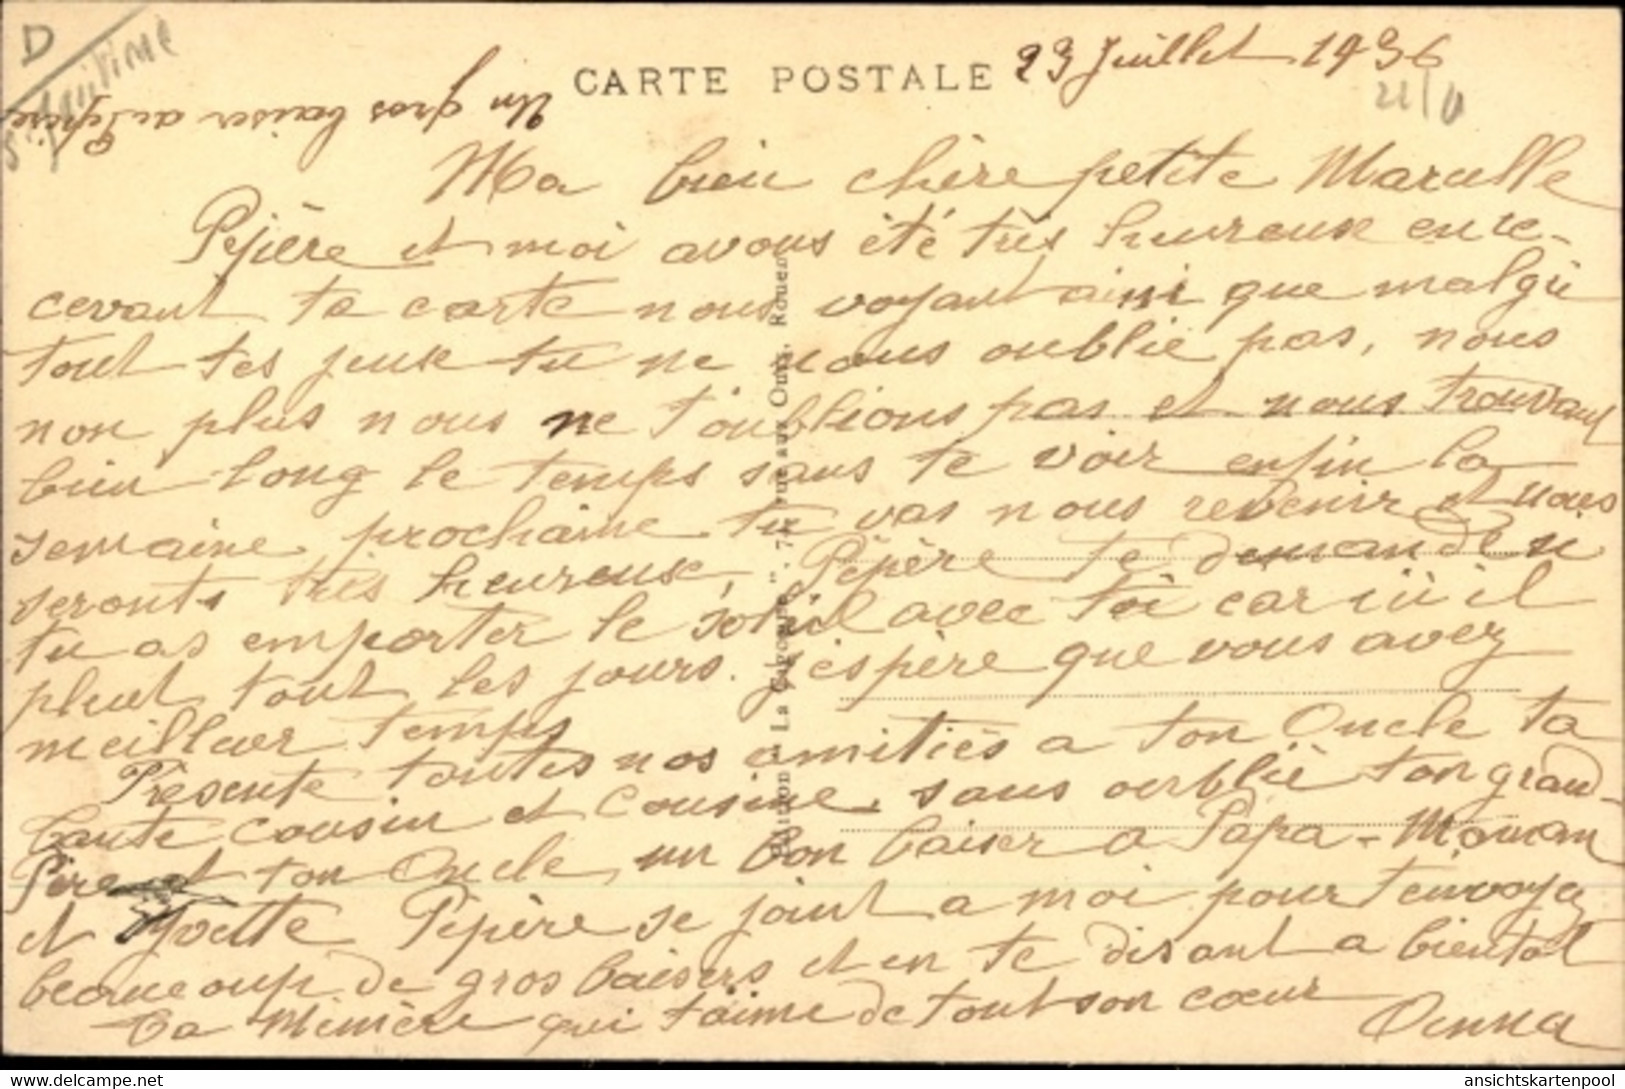 D
Sne Maritime
Un gros baiser au Pépère
CARTE POSTALE
23 Juillet 1936
Ma bien chère petite Marcelle
Pépère et moi avons été très heureux en re-
cevant ta carte nous voyant ainsi que malgré
tout tes jeux tu ne nous oublie pas, nous
non plus nous ne t'oublions pas et nous trouvant
bien long le temps sans te voir enfin la
semaine prochaine tu vas nous revenir et nous
seronts très heureux, Pépère te demande si
tu as emporter le soleil avec toi car ici il
pleut tout les jours. j'espère que vous avez
meilleur temps
Présente toutes nos amitiés a ton Oncle ta
tante cousin et cousine, sans oublié ton grand-
Père et ton Oncle, un bon baiser a Papa-Maman
et Yvette Pépère se joint a moi pour t'envoyez
beaucoup de gros baisers et en te disant a bientot
ta Mémère qui t'aime de tout son cœur
Edition " La Cigogne ", 74, rue aux Ours, Rouen
ansichtskartenpool
www.delcampe.net